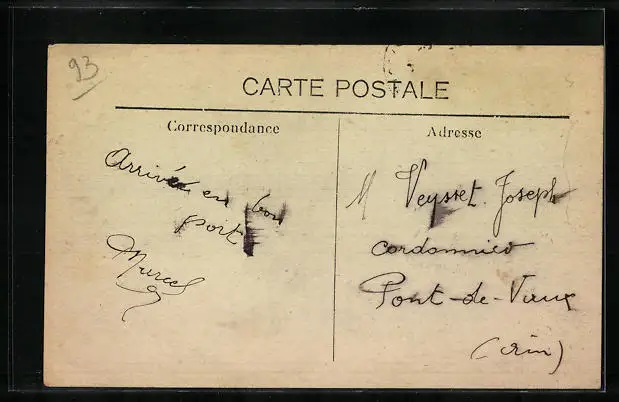 93
CARTE POSTALE
Correspondance
Arrivée en bon
port
Marcel
Adresse
M Veysset Joseph
cordonnier
Pont-de-Vaux
(Ain)